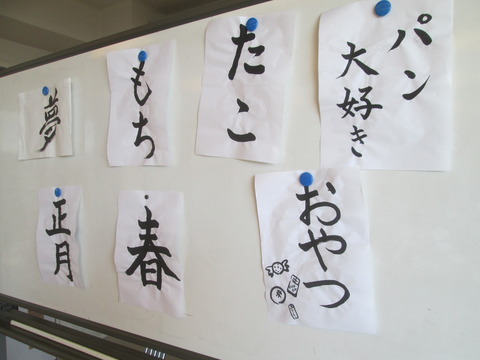 夢
もち
たこ
パン
大好き
正月
春
おやつ